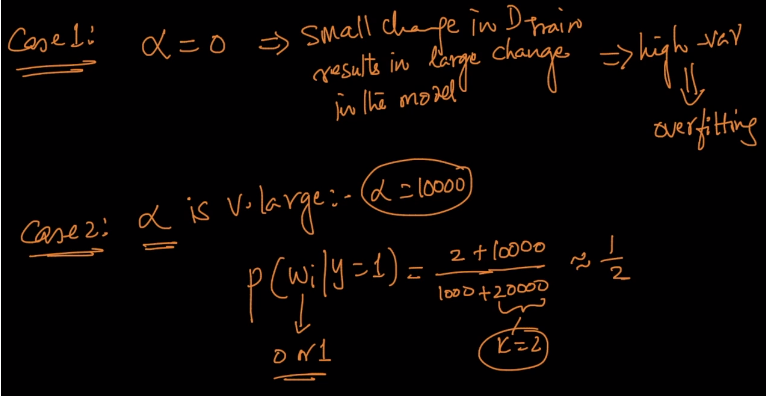 Case 1: α = 0 ⇒ small change in Dtrain results in large change in the model ⇒ high var
⇓
overfitting
Case 2: α is v. large:- α = 10000
P(wi|y=1) = (2 + 10000) / (1000 + 20000) ≈ 1/2
↓
0 or 1
K=2